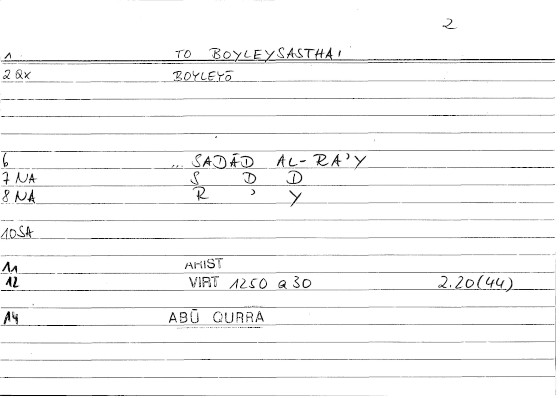 2
1 TO BOYLEYSASTHAI
2 QX BOYLEYŌ
6 ... SADĀD AL-RA'Y
7 NA S D D
8 NA R ' Y
10 SA
11 ARIST
12 VIRT 1250 a 30 2.20(44)
14 ABŪ QURRA